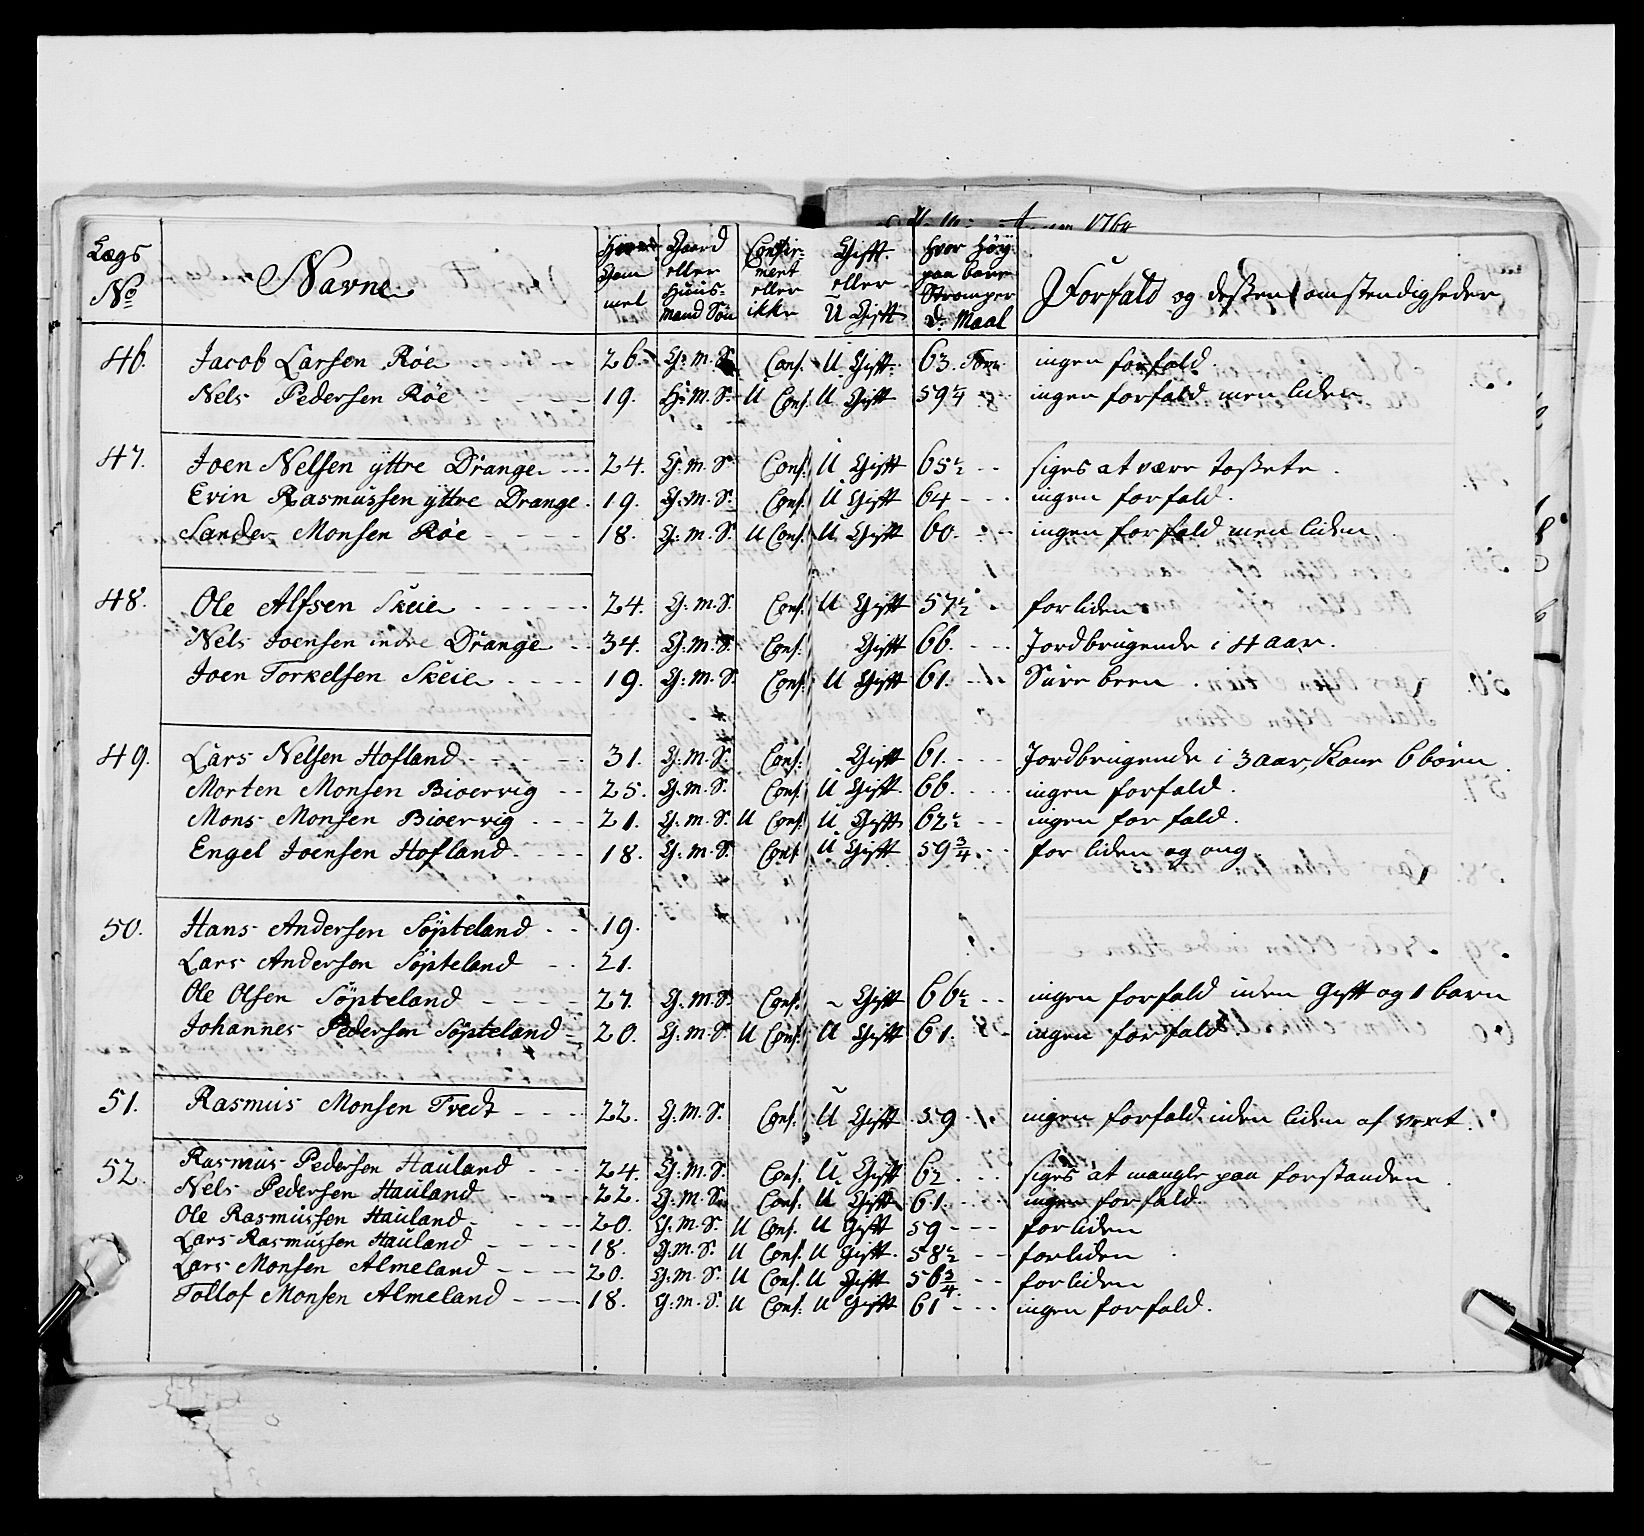 1764
Lægs No Navne Hvor Gam mel Gaard eller Huus= Mand Søn Confir= meret eller ikke Gifft eller U Gifft Hvor Høy paa bare Strømper d: Maal Forfald og dessen omstendigheder
46. Jacob Larsen Røe 26. G: M. S. Conf. U Gift. 63. Tom ingen forfald.
Nels Pedersen Røe 19. H: M. S. U Conf. U Gift 59 1/4 ingen forfald men liden
47. Joen Nelsen yttre Drange 24. G. M. S. Conf. U Gift 65 1/2 siges at være tossete.
Erin Rasmussen yttre Drange 19. G. M. S. Conf. U Gift 64 ingen forfald.
Sander Monsen Røe 18. G. M. S. U Conf. U Gift 60. ingen forfald men liden
48. Ole Alfsen Skeie 24. G. M. S. Conf. U Gift 57 1/2 for liden
Nels Joensen indre Drange 34. G. M. S. Conf. Gift 66. Jordbrugende i 4 aar.
Joen Torkelsen Skeie 19. G. M. S. Conf. U Gift 61. Sure been.
49. Lars Nelsen Hofland 31. G. M. S. Conf. Gift 61. Jordbrugende i 3 aar, Kone 6 børn
Morten Monsen Bioervig 25. G. M. S. Conf. U Gift 66. ingen forfald.
Mons Monsen Bioervig 21. G. M. S. U Conf. U Gift 62 1/2 ingen forfald.
Engel Joensen Hofland 18. G. M. S. Conf U Gift 59 3/4 for liden og ung
50. Hans Andersen Söpteland 19.
Lars Andersen Söpteland 21.
Ole Olsen Söpteland 27. G. M. S. Conf. Gift 66 1/2 ingen forfald uden Gift og 1 barn
Johannes Pedersen Söpteland 20. G. M. S. U Conf. U Gift 61. ingen forfald
51. Rasmus Monsen Tvedt 22. G. M. S. Conf. U Gift 59 ingen forfald uden liden af vext.
52. Rasmus Pedersen Hauland 24. G. M. S. Conf. U Gift 62 siges at mangle paa forstanden.
Nels Pedersen Hauland 22. G. M. S. Conf. U Gift 61. ingen forfald.
Ole Rasmussen Hauland 20. G. M. S. U Conf. U Gift 59 for liden
Lars Rasmussen Hauland 18. G. M. S. U Conf. U Gift 58 1/2 for liden
Lars Monsen Almeland 20. G. M. S. U Conf. U Gift 56 3/4 for liden
Tollof Monsen Almeland 18. G. M. S. U Conf. U Gift 61 ingen forfald.